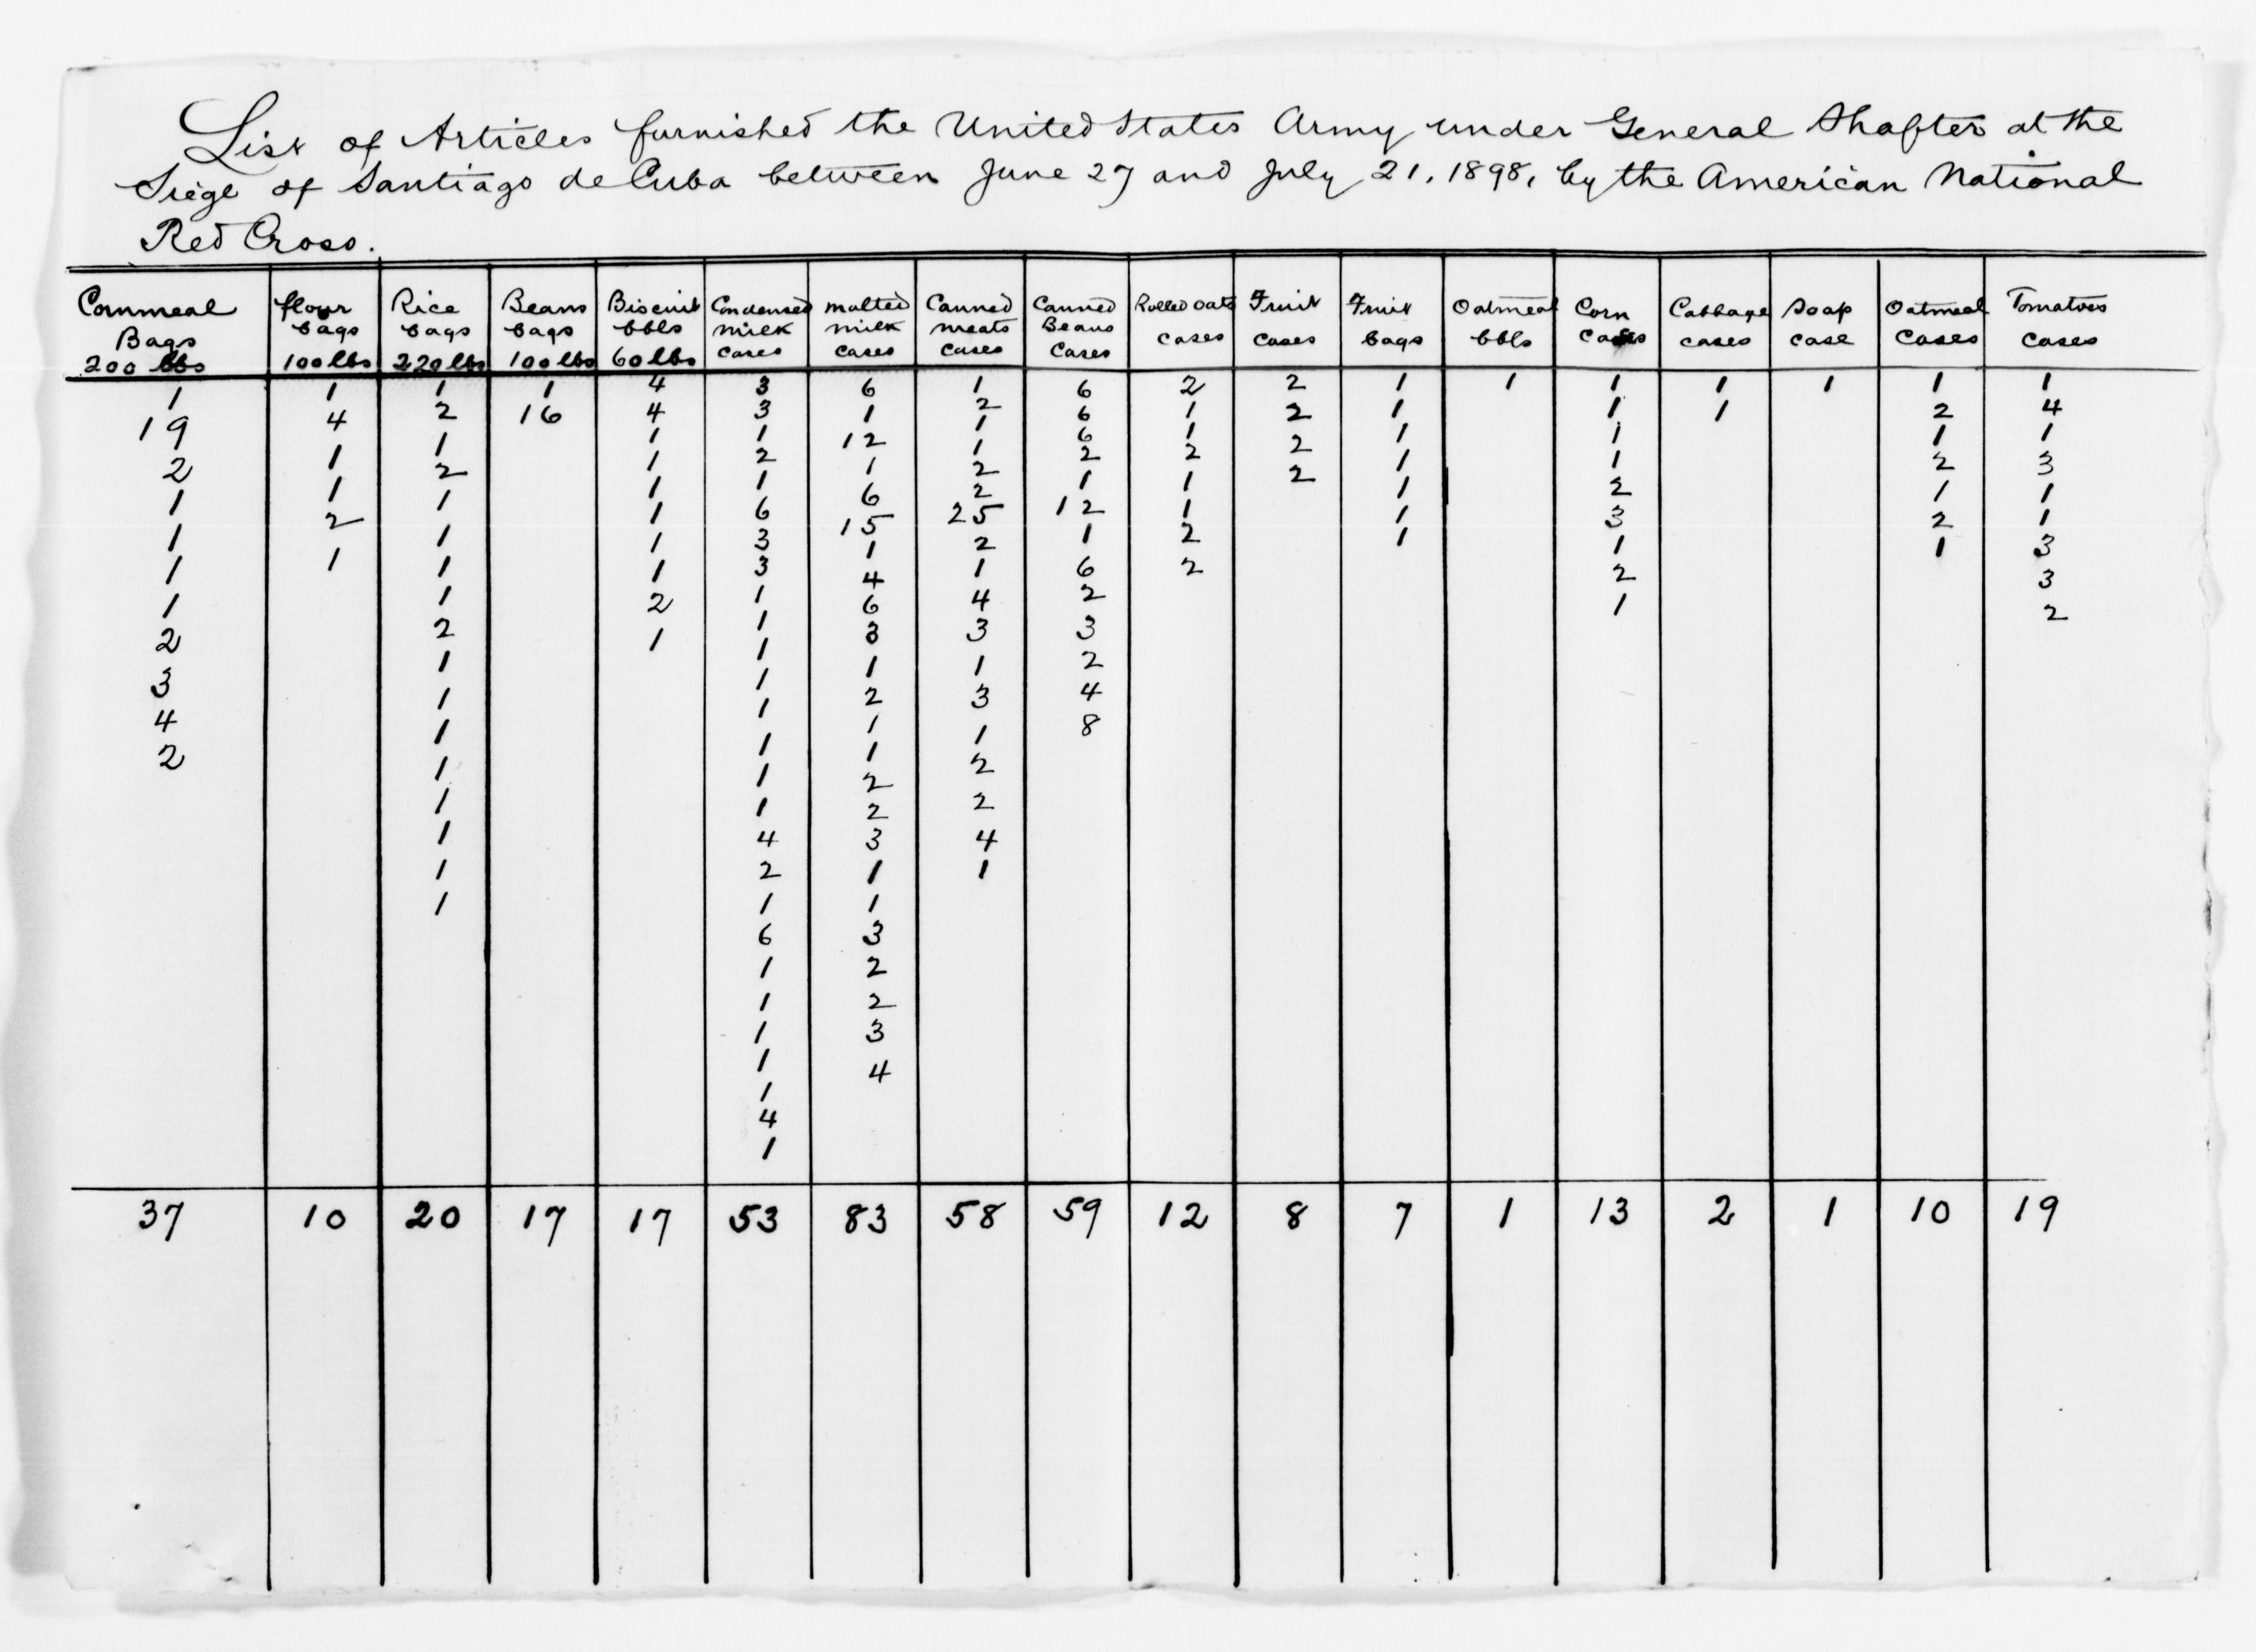 List of Articles furnished the United States Army under General Shafter at the
Siege of Santiago de Cuba between June 27 and July 21, 1898, by the American National
Red Cross.
Cornmeal flour Rice Beans Biscuit Condensed malted Canned Canned Rolled Oats Fruit Fruit Oatmeal Corn Cabbage Soap Oatmeal Tomatoes
Bags bags bags bags bbls milk milk meats Beans cases cases bags bbls cases cases case cases cases
200 lbs 100 lbs 220 lbs 100 lbs 60 lbs cases cases cases cases
1 1 1 1 4 3 6 1 6 2 2 1 1 1 1 1 1 1
19 4 2 16 4 3 1 2 6 1 2 1 1 1 2 4
2 1 1 1 1 12 1 6 1 2 1 1 1 1
1 1 2 1 2 1 1 2 2 2 1 1 2 3
1 2 1 1 1 6 2 1 1 1 2 1 1
1 1 1 1 6 15 2 12 1 1 3 2 1
1 1 1 3 1 25 1 2 1 1 1 3
2 1 1 3 4 2 6 2 2 3
3 2 2 1 6 1 2 1 2
4 1 1 1 3 4 3
2 1 1 1 3 2
1 1 2 1 4
1 1 1 3 8
1 1 1 1
1 1 2 2
1 1 2 2
1 4 3 4
2 1 1
1 1
6 3
1 2
1 2
1 3
1 4
1
4
1
37 10 20 17 17 53 83 58 59 12 8 7 1 13 2 1 10 19